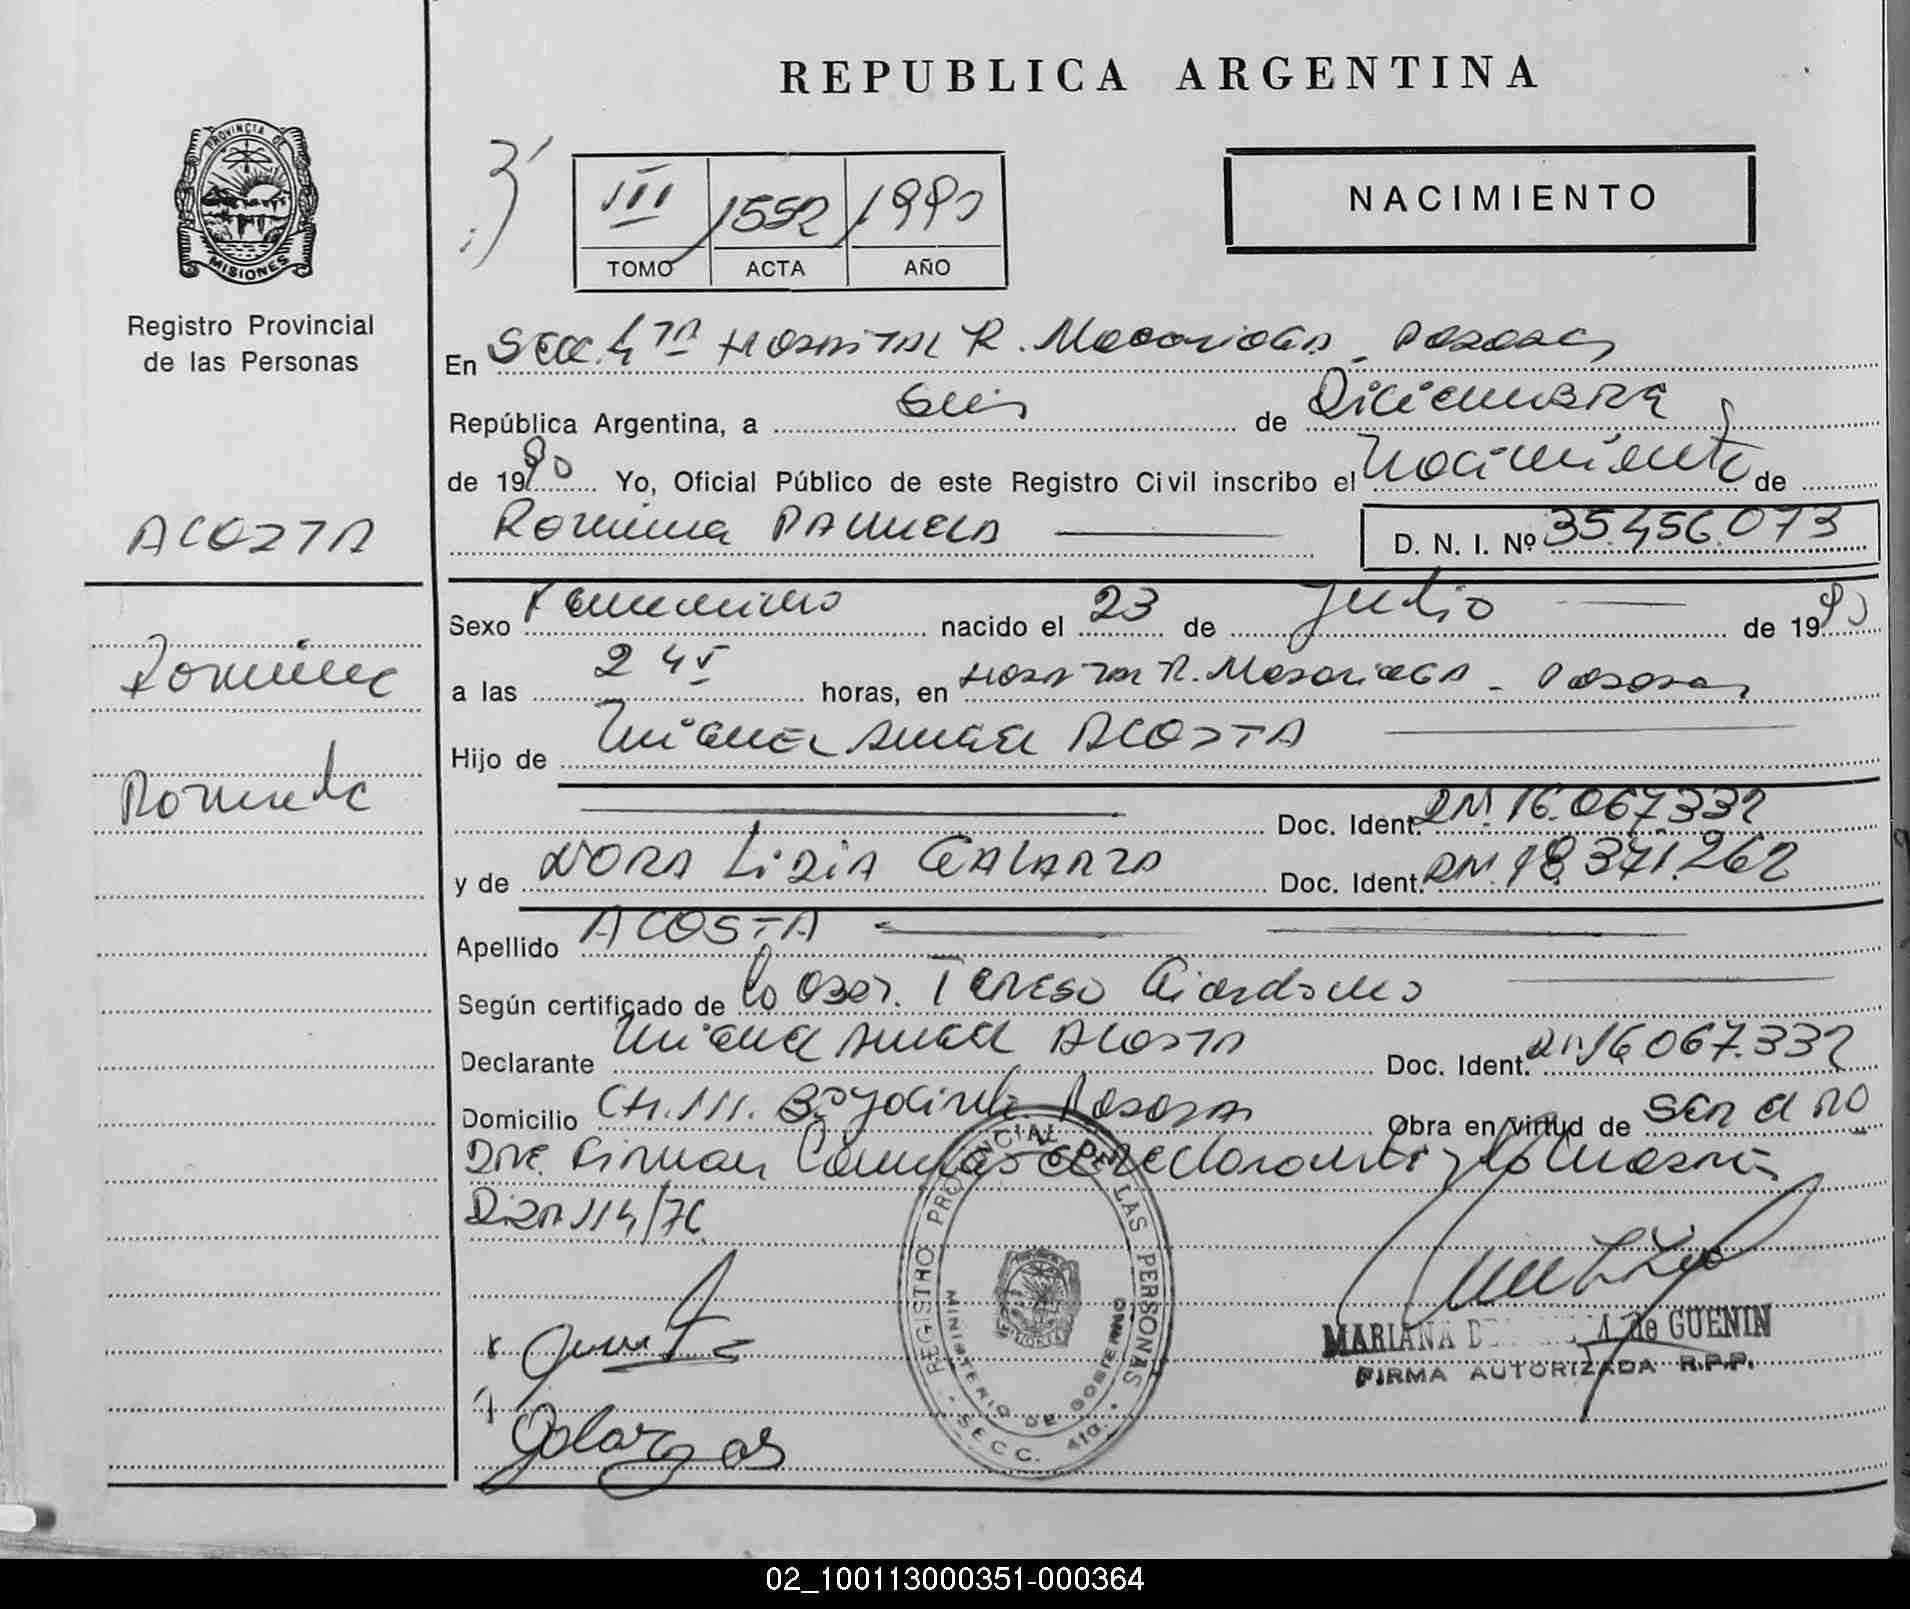 REPUBLICA ARGENTINA
PROVINCIA DE
MISIONES
Registro Provincial
de las Personas
III 1552 1990
TOMO ACTA AÑO
NACIMIENTO
En Secc. 4ta Hospital R. Madariaga - Posadas
República Argentina, a Seis de Diciembre
de 1990 Yo, Oficial Público de este Registro Civil inscribo el Nacimiento de
ACOSTA
Romina PAMELA D. N. I. Nº 35.456.073
Sexo Femenino nacido el 23 de Julio de 1990
Romina
a las horas, en Hospital R. Madariaga - Posadas
Hijo de MIGUEL ANGEL ACOSTA
Pamela
Doc. Ident. DNI. 16.067.332
y de NORA LIDIA GALARZA Doc. Ident. DNI. 18.371.262
Apellido ACOSTA
Según certificado de la Obst. Teresa
Declarante MIGUEL ANGEL ACOSTA Doc. Ident. DNI 16.067.332
Domicilio CH. 111. Bº Posadas Obra en virtud de ser el pa
dre. Firman el declarante y la madre
114/76
REGISTRO PROVINCIAL DE LAS PERSONAS
MINISTERIO DE GOBIERNO
SECC. 4ta.
MARIANA de GUENIN
FIRMA AUTORIZADA R.P.P.
02_100113000351-000364